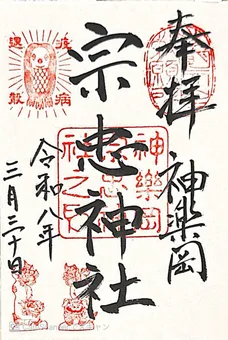 奉拝
神楽岡
宗忠神社
令和八年
三月二十日
疫病
退散
神樂岡
宗忠神
社之印